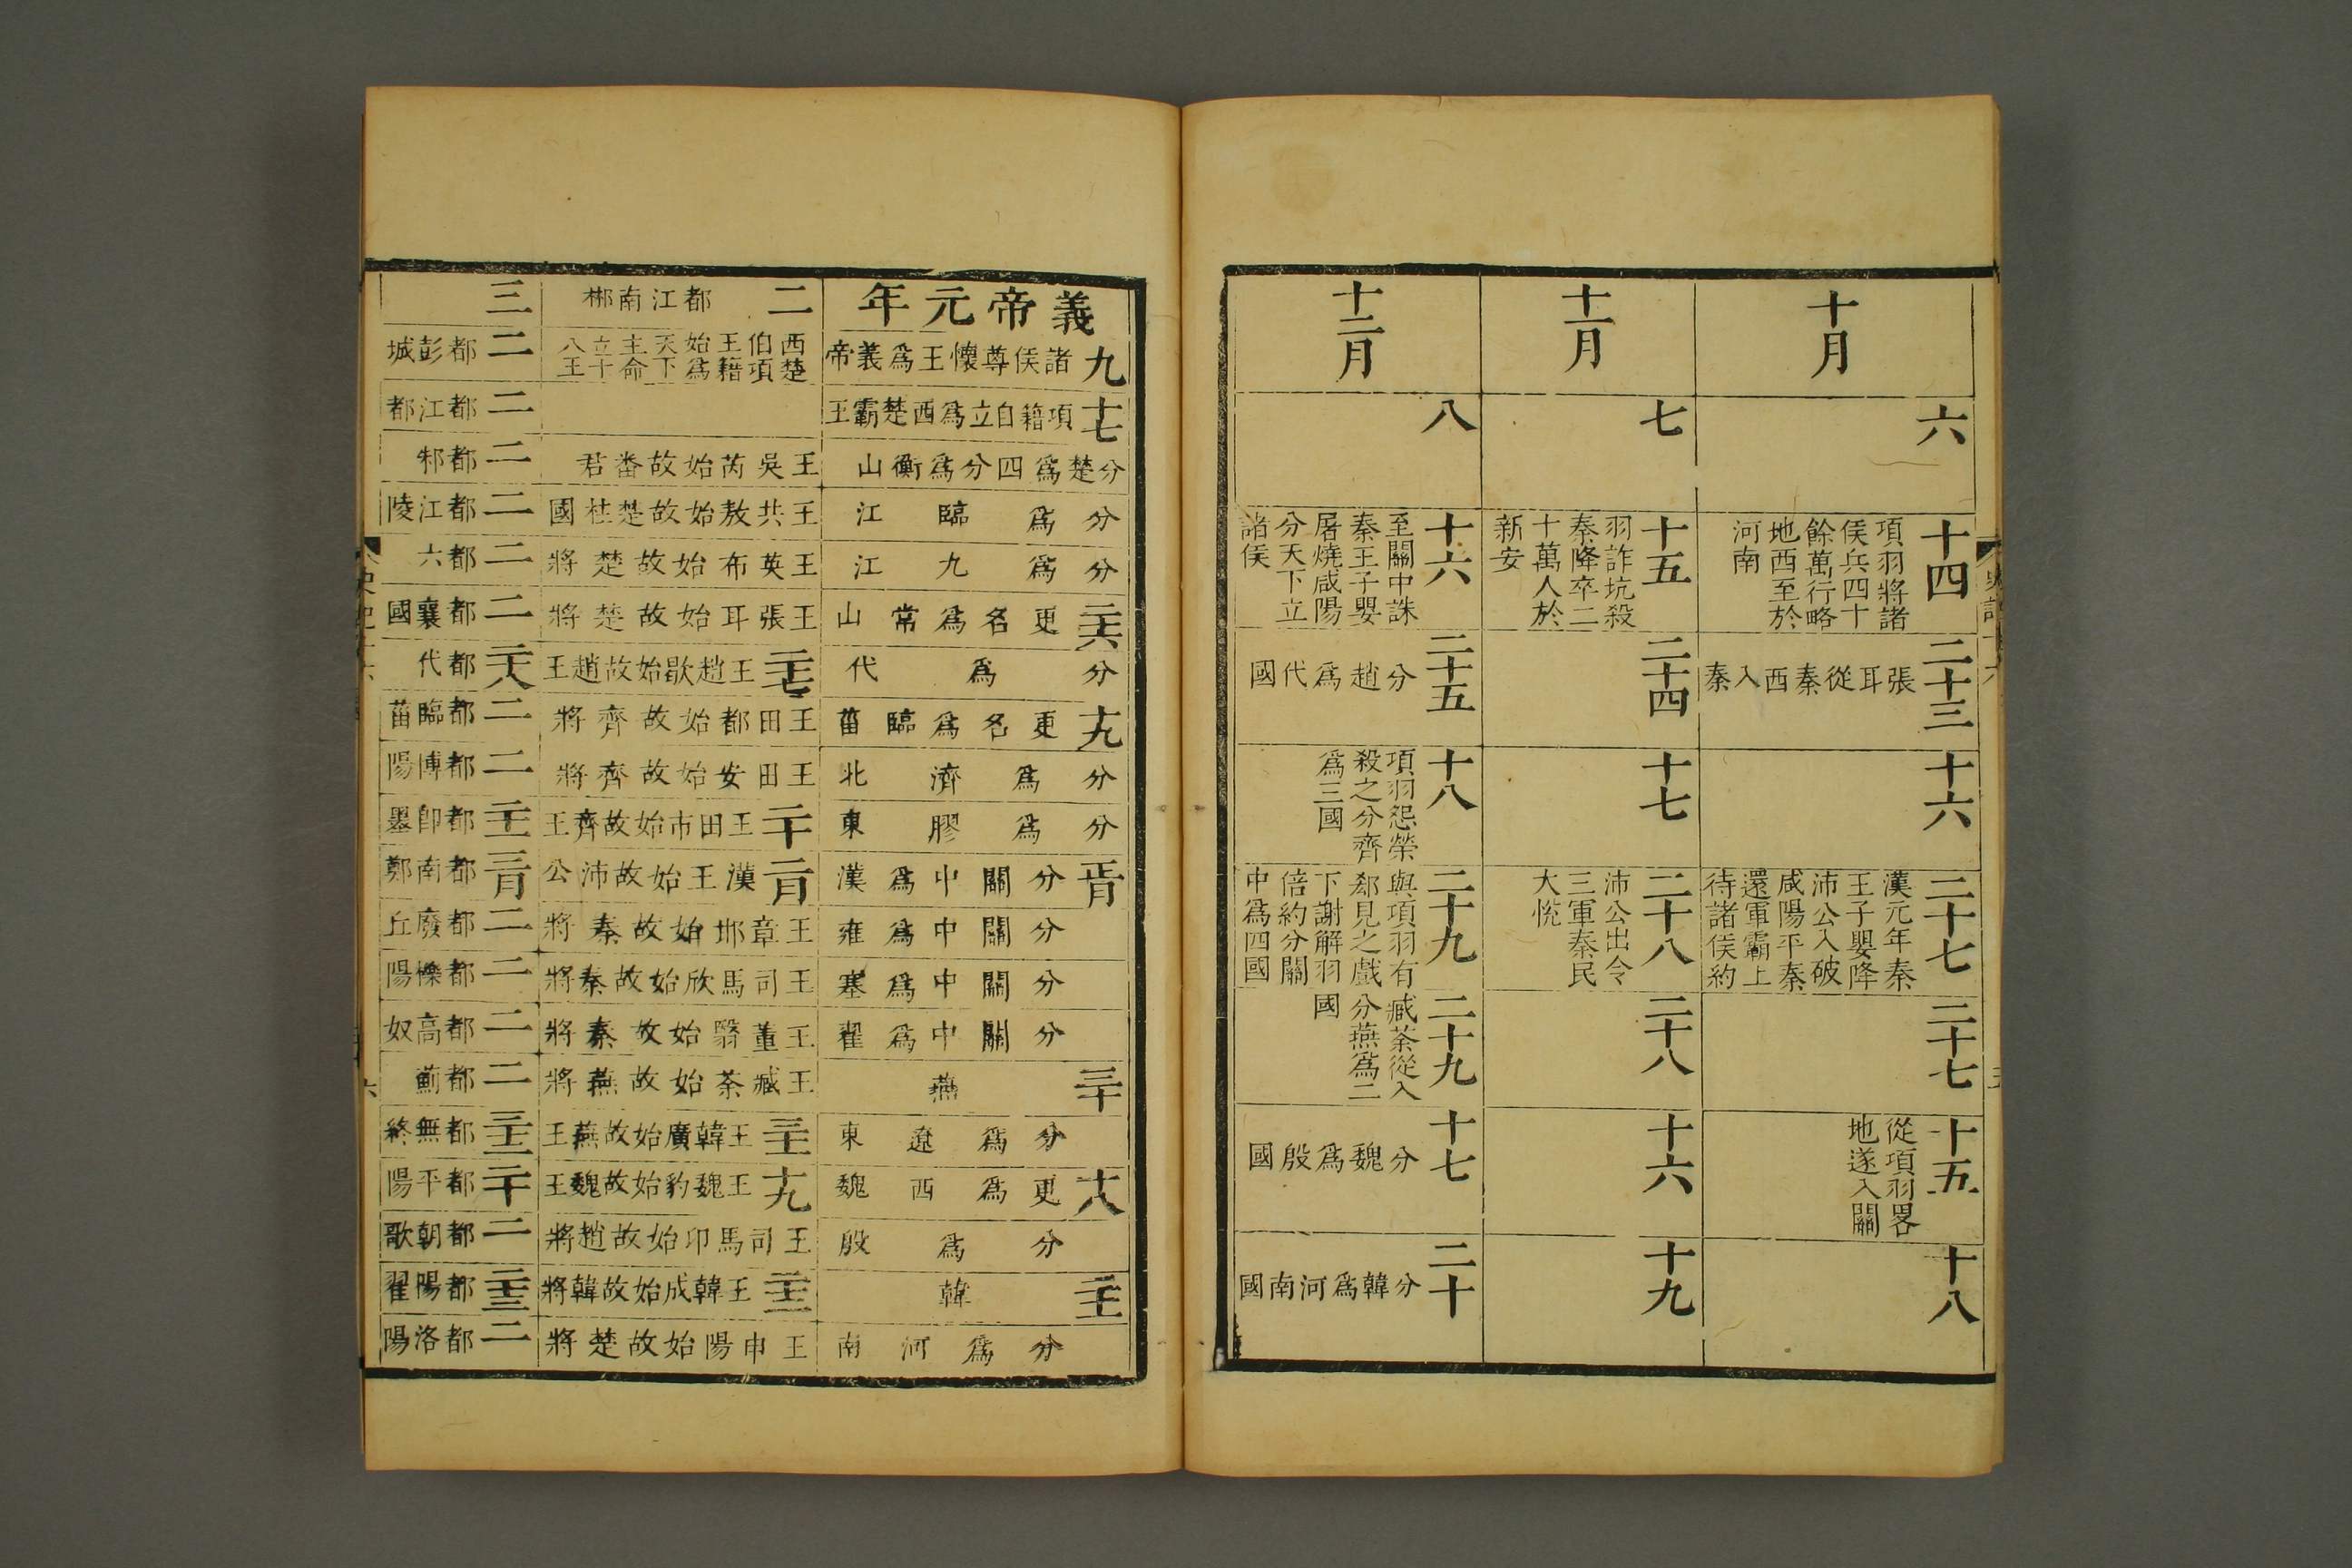 十月
六
十四
項羽將諸
侯兵四十
餘萬行略
地西至於
河南
二十三
張耳從秦西入秦
十六
二十七
漢元年秦
王子嬰降
沛公入破
咸陽平秦
還軍霸上
待諸侯約
二十七
十五
從項羽畧
地遂入關
十八
十一月
七
十五
羽詐坑殺
秦降卒二
十萬人於
新安
二十四
十七
二十八
沛公出令
三軍秦民
大悅
二十八
十六
十九
十二月
八
十六
至關中誅
秦王子嬰
屠燒咸陽
分天下立
諸侯
二十五
分趙爲代國
十八
項羽怨榮
殺之分齊
爲三國
二十九
與項羽有
郄見之戲
下謝解羽
倍約分關
中爲四國
二十九
臧荼從入
分燕爲二
國
十七
分魏爲殷國
二十
分韓爲河南國
義帝元年
九 諸侯尊懷王爲義帝
十七 項籍自立爲西楚霸王
分楚爲四分爲衡山
分爲臨江
分爲九江
二十六 更名爲常山
分爲代
十九 更名爲臨菑
分爲濟北
分爲膠東
正月 分關中爲漢
分關中爲雍
分關中爲塞
分關中爲翟
三十 燕
分爲遼東
十八 更爲西魏
分爲殷
二十一 韓
分爲河南
二 都江南郴
西楚
伯項
王籍
始爲
天下
主命
立十
八王
王吳芮始故番君
王共敖始故楚柱國
王英布始故楚將
王張耳始故楚將
二十七 王趙歇始故趙王
王田都始故齊將
王田安始故齊將
二十 王田市始故齊王
二月 漢王始故沛公
王章邯始故秦將
王司馬欣始故秦將
王董翳始故秦將
王臧荼始故燕將
三十一 王韓廣始故燕王
十九 王魏豹始故魏王
王司馬卬始故趙將
二十二 王韓成始故韓將
王申陽始故楚將
三
二 都彭城
二 都江都
二 都邾
二 都江陵
二 都六
二 都襄國
二十八 都代
二 都臨菑
二 都博陽
二十一 都卽墨
三月 都南鄭
二 都廢丘
二 都櫟陽
二 都高奴
二 都薊
三十二 都無終
二十 都平陽
二 都朝歌
二十三 都陽翟
二 都洛陽